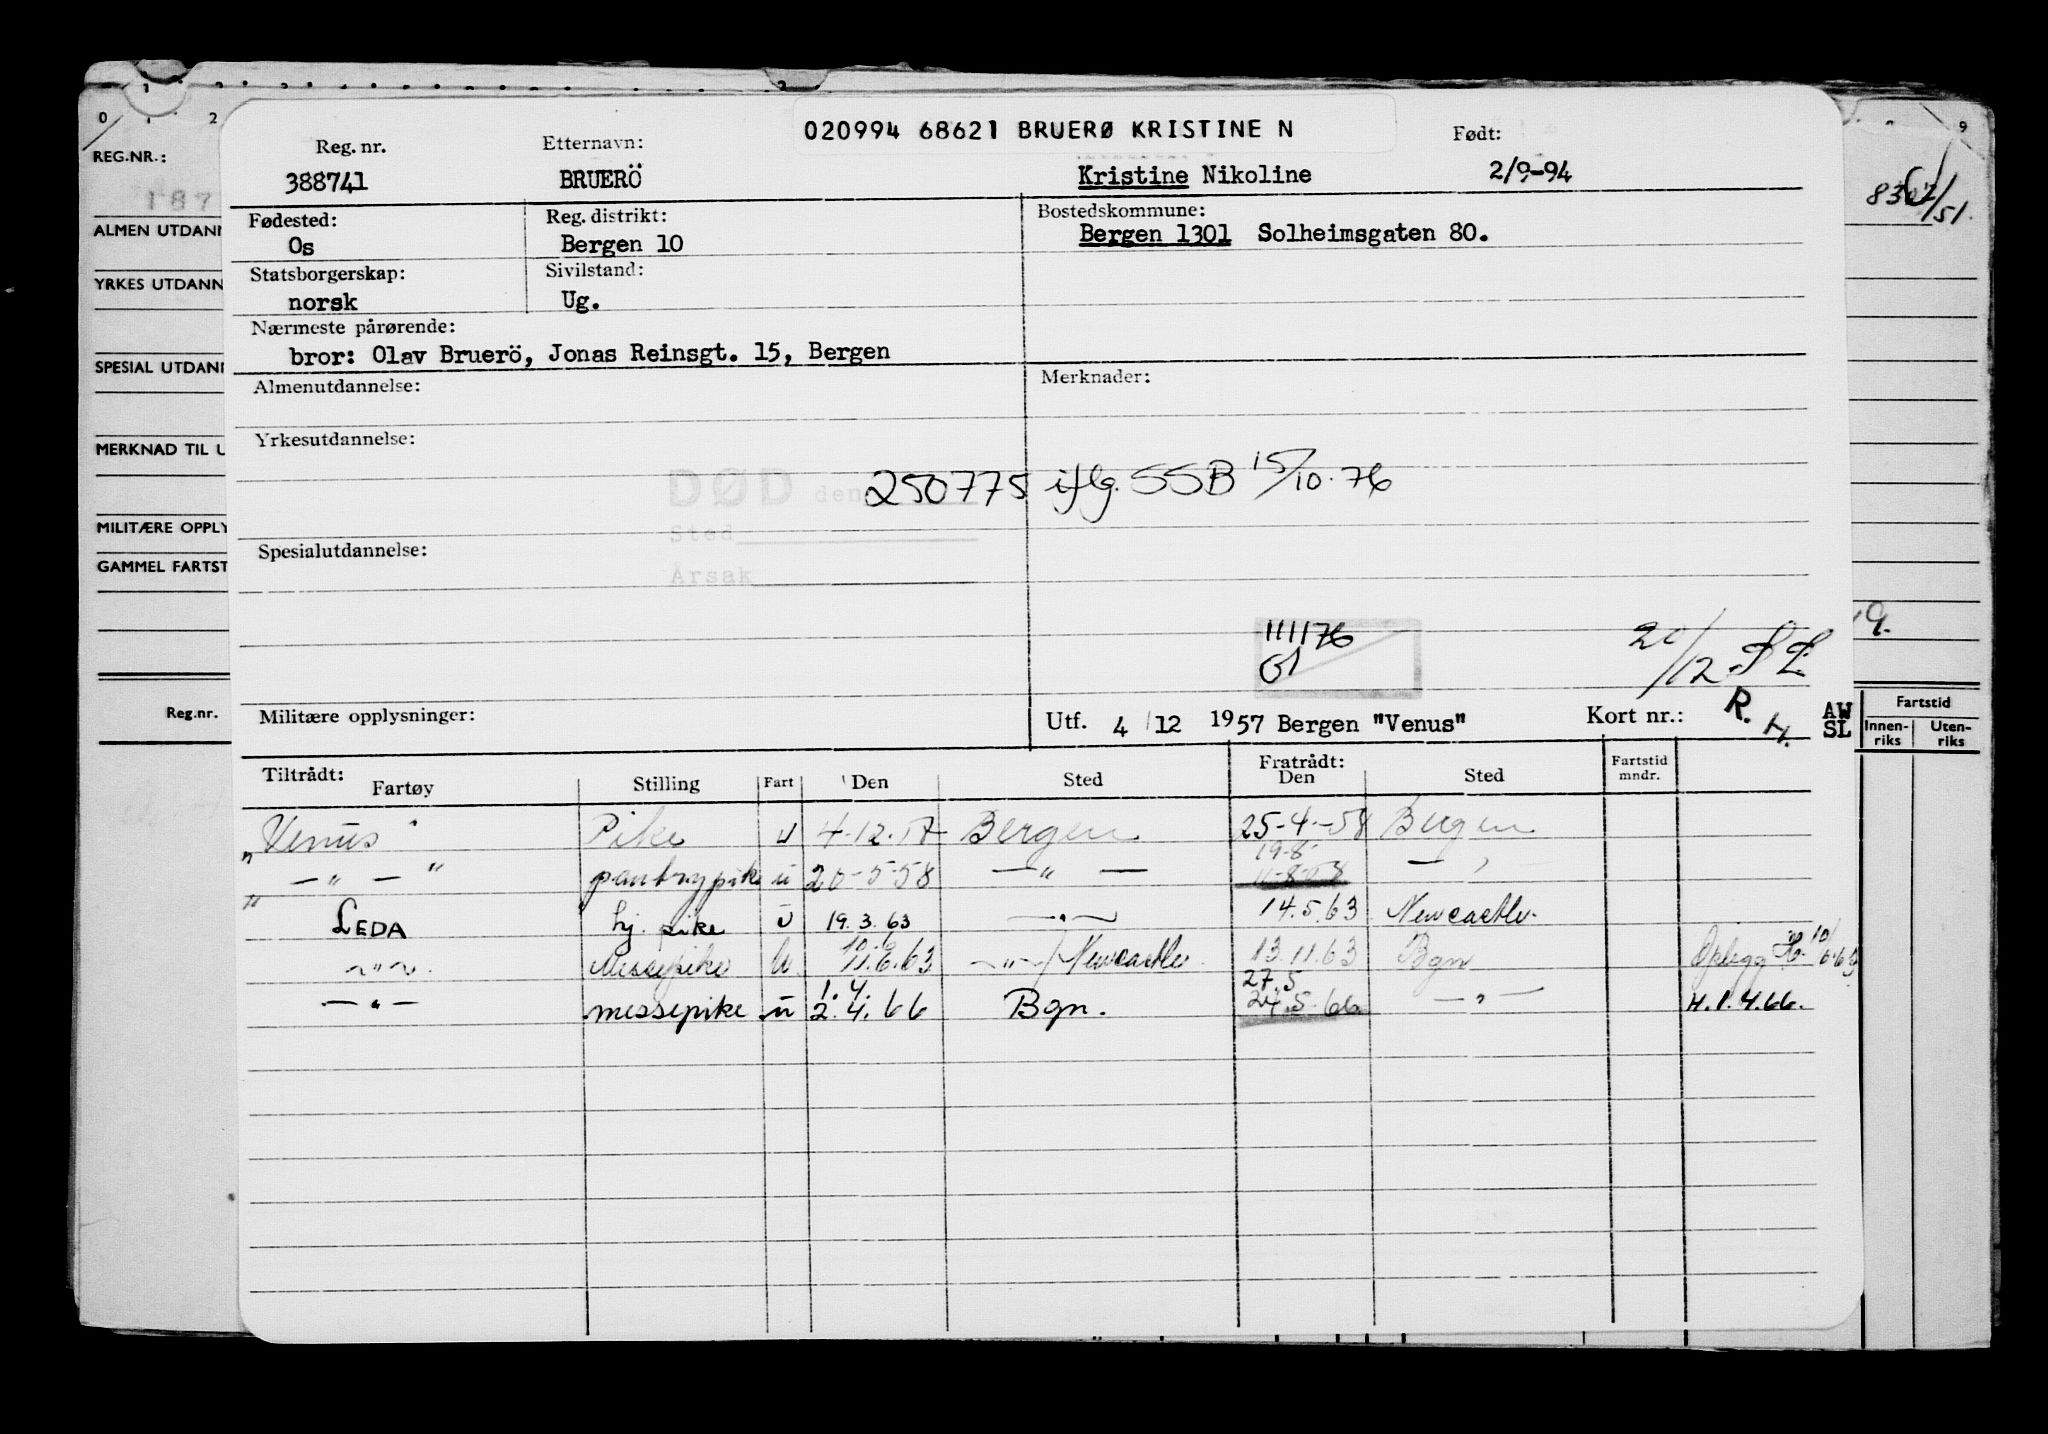 020994 68621 BRUERØ KRISTINE N
Reg. nr. Etternavn: Født:
388741 BRUERÖ Kristine Nikoline 2/9-94
Fødested: Reg. distrikt: Bostedskommune:
Os Bergen 10 Bergen 1301 Solheimsgaten 80.
Statsborgerskap: Sivilstand:
norsk Ug.
Nærmeste pårørende:
bror: Olav Bruerö, Jonas Reinsgt. 15, Bergen
Almenutdannelse: Merknader:
Yrkesutdannelse:
DØD den 250775 iflg. SSB 15/10.76
Sted
Spesialutdannelse:
Årsak
111176
20/12
Militære opplysninger: Utf. 4/12 1957 Bergen "Venus" Kort nr.: R. H.
Tiltrådt: Fratrådt: Fartstid
Fartøy Stilling Fart Den Sted Den Sted mndr.
"Venus" Pike u 4.12.57 Bergen 25-4-58 Bergen
" — " — " pantrypike u 20-5-58 — " — 19-8 — " —
11-8-58
LEDA hj. pike u 19.3.63 — " — 14.5.63 Newcastle
10.6
— " — Messepike u 11.6.63 — " —/Newcastle 13.11.63 Bgn Oplegg
1.4 27.5
— " — messepike u 2.4.66 Bgn. 24.5.66 — " — H.1.4.66.
0 1 2
REG.NR.:
187
ALMEN UTDANN
YRKES UTDANN
SPESIAL UTDANN
MERKNAD TIL U
MILITÆRE OPPLY
GAMMEL FARTST
Reg.nr.
9
AW Fartstid
SL Innen- Uten-
riks riks